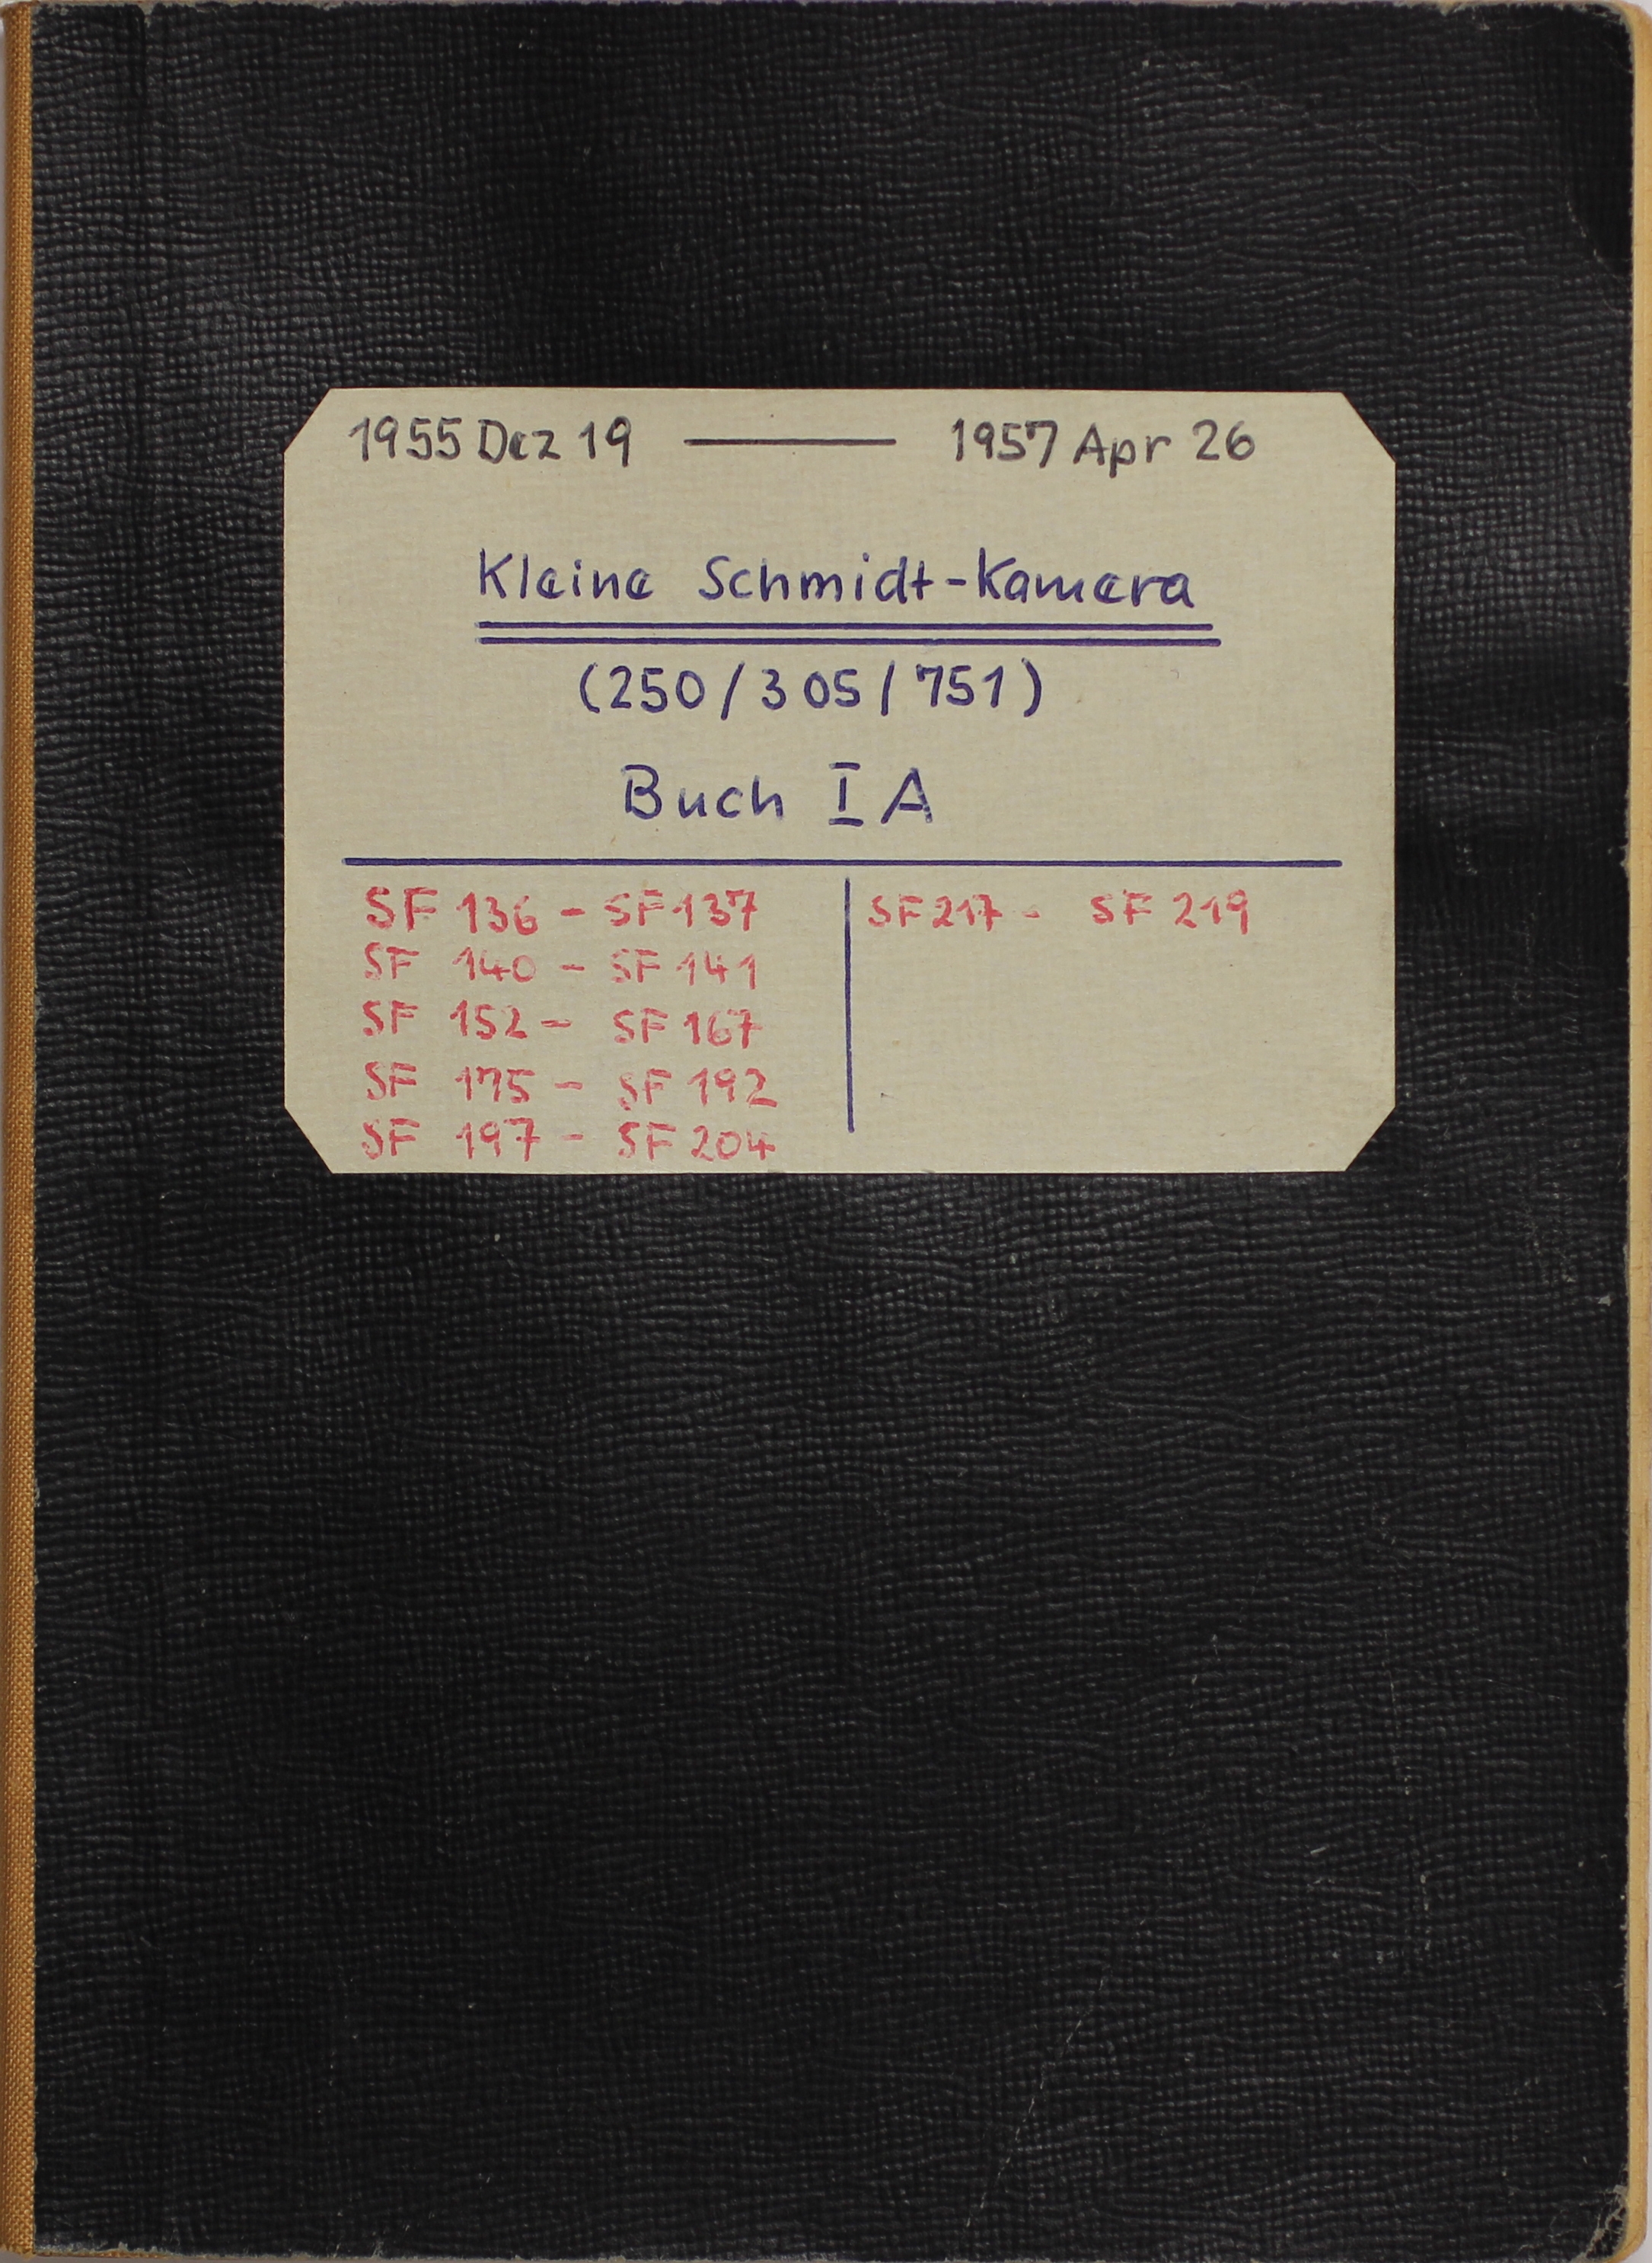 1955 Dez 19 — 1957 Apr 26
Kleine Schmidt-Kamera
(250/305/751)
Buch I A
SF 136 - SF 137
SF 140 - SF 141
SF 152 - SF 167
SF 175 - SF 192
SF 197 - SF 204
SF 217 - SF 219